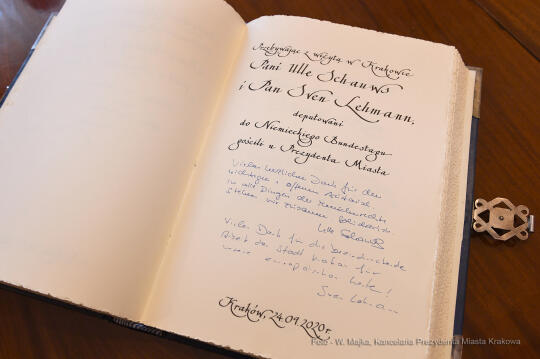 Przebywając z wizytą w Krakowie
Pani Ulle Schauws
i Pan Sven Lehmann,
deputowani
do Niemieckiego Bundestagu
gościli u Prezydenta Miasta
Vielen herzlichen Dank für den
wichtigen, offenen
in allen Dingen der Menschenrechte
stehen wir zusammen
Ulle Schauws
Vielen Dank für die beeindruckende
Arbeit der Stadt Krakau für
unsere europäischen Werte!
Sven Lehmann
Kraków, 24.09.2020 r.
Foto - W. Majka, Kancelaria Prezydenta Miasta Krakowa